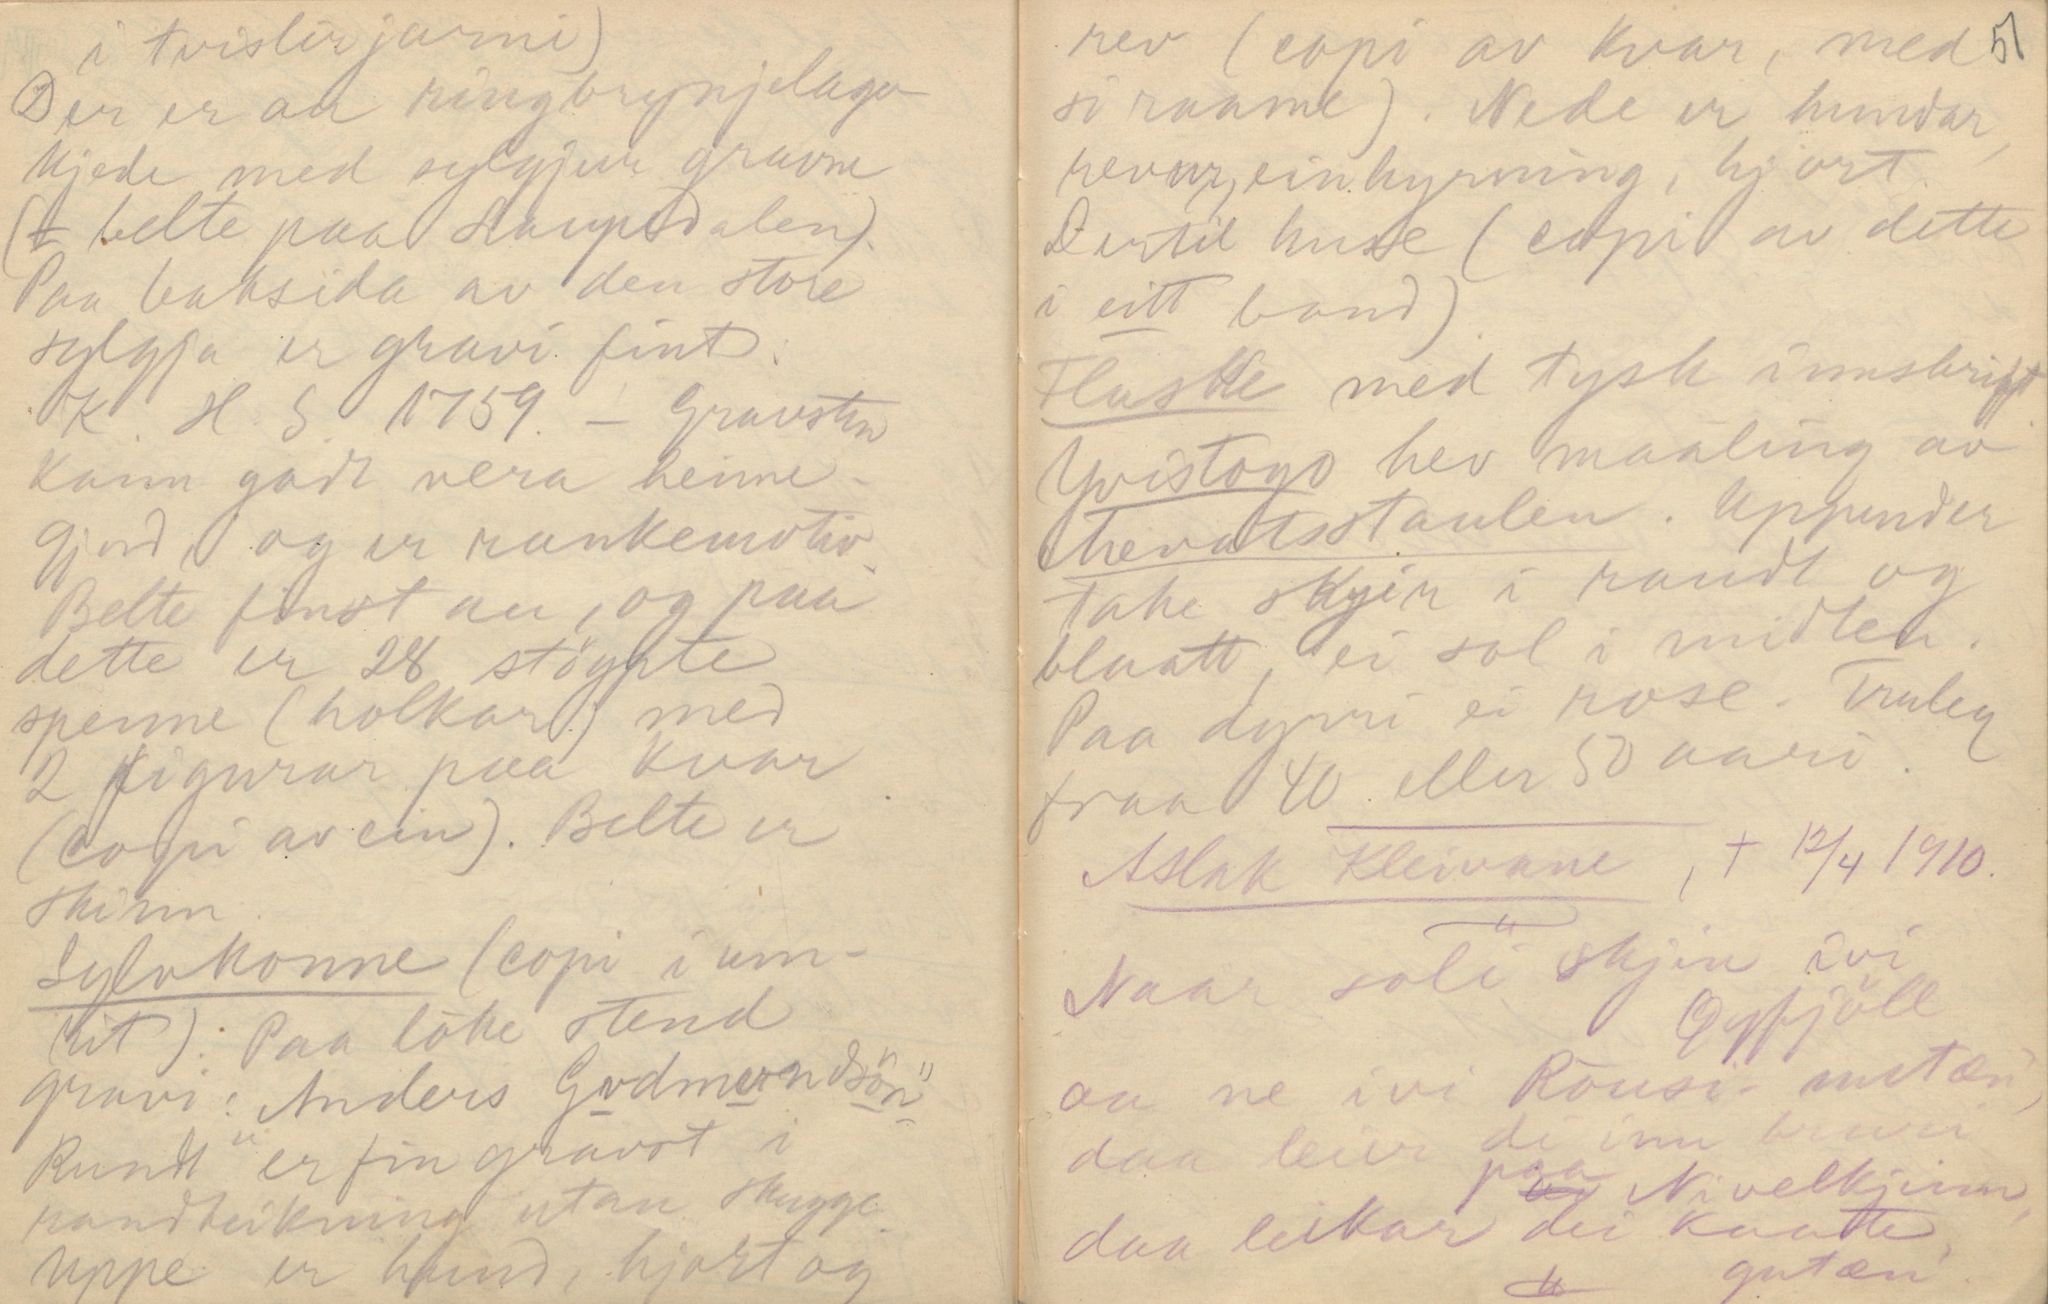 i tvislirjarni)
Der er aa ringbrynjelaga
kjede med sylgjur gravne
(t belte paa Haupsdalen).
Paa baksida av den store
sylgja er gravi fint:
K. H. S. 1759. – Gravsten
kann godt vera heime-
gjord, og er rankemotiv.
Belte finst au, og paa
dette er 28 stöypte
spenne (holkar) med
2 figurar paa kvar
(copi av ein). Belte er
skinn.
Sylvkonne (copi i um-
rit). Paa loke stend
gravi: Anders Godmoondsön"
Rundt er fin gravst i
randteikning utan skugge.
Uppe er hund, hjort og
51
rev (copi av kvar, med
si raame). Nede er hundar,
revar, einhyrning, hjort.
Dertil huse (copi av dette
i eitt band).
Flaske med tysk innskrift
Yvistogo hev maaling av
Hevatsstaulen. Uppunder
take skyir i raudt og
blaatt, ei sol i midten.
Paa dynni ei rose. Truleg
fraa 40 eller 50 aari.
Aslak Kleivane, † 12/4 1910.
"
Naar soli skjin ivi
Øyfjöll
aa ne ivi Rousi- nutæn,
daa leier di inn bruri
paa Nivelkjinn,
daa leikar dei kaatte
gutæn.
"